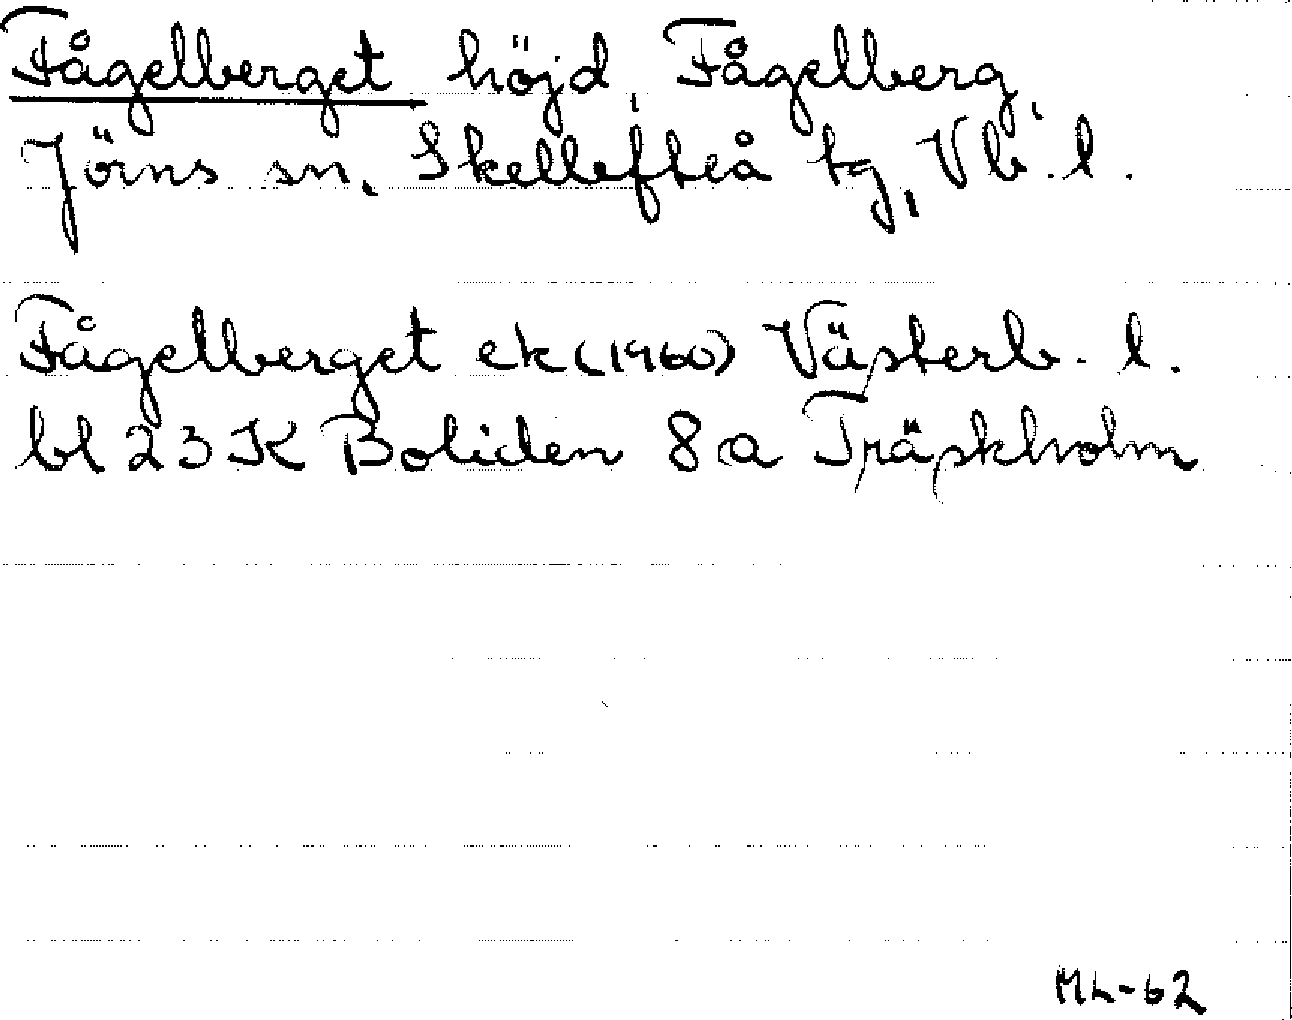 Fågelberget höjd, Fågelberg,
Jörns sn, Skellefteå tg, Vb. l.
Fågelberget ek (1960) Västerb. l.
bl 23 K Boliden 8 a Träskholm
ML-62